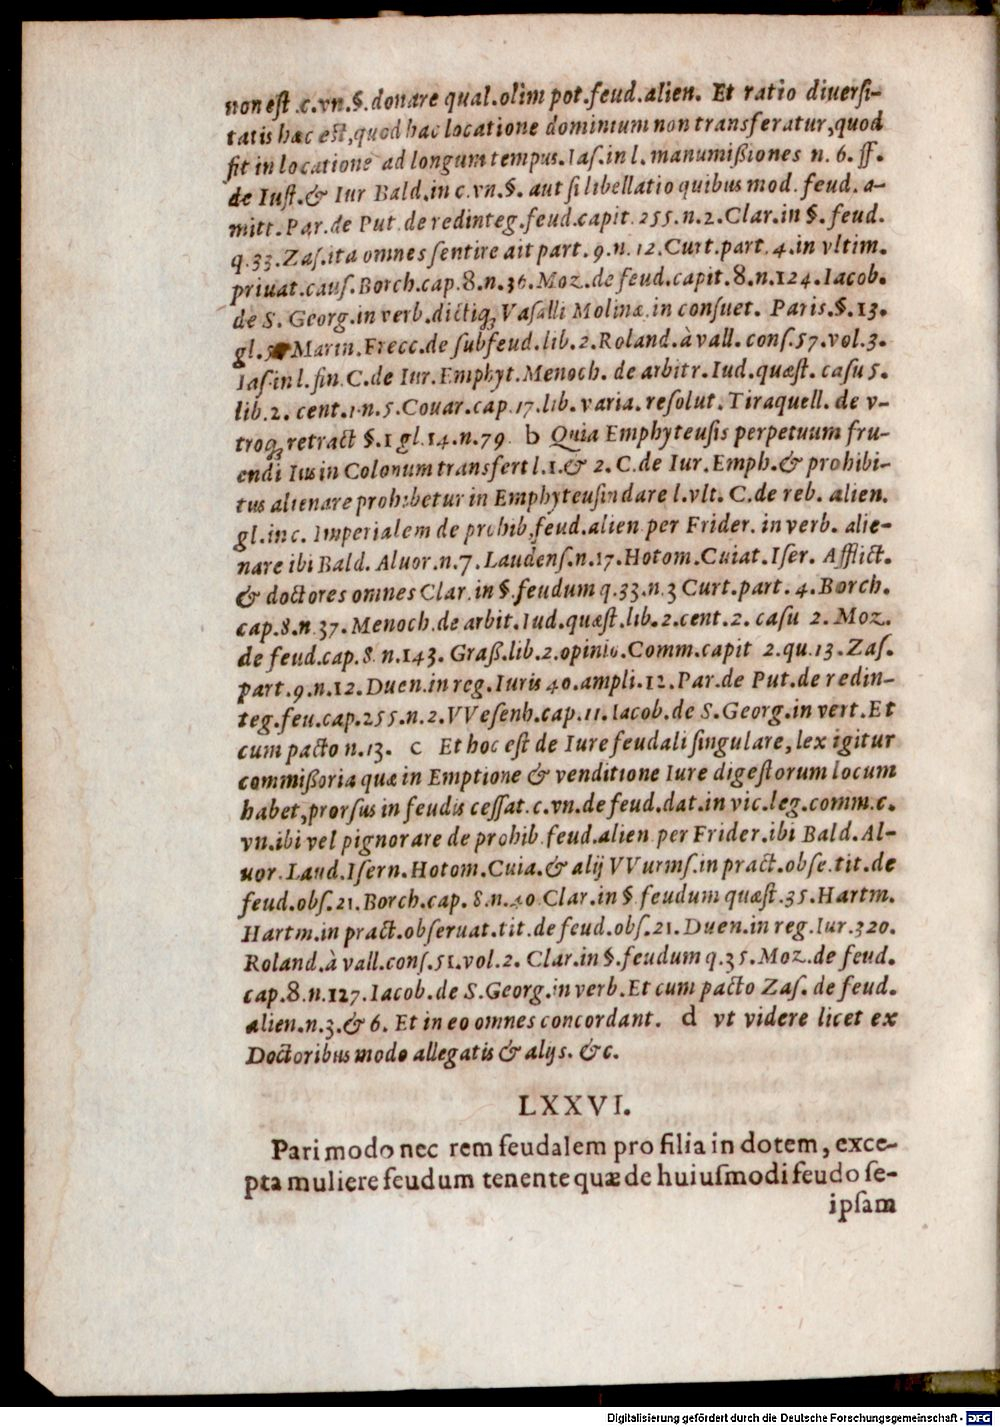 non est .c.vn.§.donare qual.olim pot.feud.alien. Et ratio diuersi-
tatis hæc est,quod hac locatione dominium non transferatur,quod
fit in locatione ad longum tempus.Ias.in l.manumißiones n. 6. ff.
de Iust.& Iur Bald.in c.vn.§. aut si libellatio quibus mod. feud. a-
mitt.Par.de Put de redinteg.feud.capit 255.n.2.Clar.in §. feud.
q.33.Zas.ita omnes sentire ait part.9.n.12.Curt.part.4.in vltim.
priuat.caus.Borch.cap.8.n.36.Moz.de feud.capit.8.n.124.Iacob.
de S. Georg.in verb.dictiq; Vasalli Molinæ.in consuet. Paris.§.13.
gl.5 Marin.Frecc.de subfeud.lib.2.Roland.à vall. cons.57.vol.3.
Ias.in l.fin.C.de Iur.Emphyt.Menoch. de arbitr.Iud.quæst. casu 5.
lib.2. cent.1.n.5.Couar.cap.17.lib.varia.resolut.Tiraquell. de v-
troq; retract §.1 gl.14.n.79. b Quia Emphyteusis perpetuum fru-
endi Ius in Colonum transfert l.1.& 2. C.de Iur.Emph.& prohibi-
tus alienare prohibetur in Emphyteusin dare l.vlt. C.de reb. alien.
gl.in c. Imperialem de prohib.feud.alien per Frider. in verb. alie-
nare ibi Bald. Aluor.n.7.Laudens.n.17.Hotom.Cuiat.Iser. Afflict.
& doctores omnes Clar.in §.feudum q.33.n.3 Curt.part.4.Borch.
cap.8.n.37.Menoch.de arbit.Iud.quæst.lib.2.cent.2. casu 2. Moz.
de feud.cap.8.n.143. Graß.lib.2.opinio.Comm.capit 2.qu.13.Zas.
part.9.n.12.Duen.in reg.Iuris 40.ampli.12.Par.de Put.de redin-
teg.feu.cap.255.n.2.VVesenb.cap.11.Iacob.de S.Georg.in vert.Et
cum pacto n.13. c Et hoc est de Iure feudali singulare, lex igitur
commißoria quæ in Emptione & venditione Iure digestorum locum
habet,prorsus in feudis cessat.c.vn.de feud.dat.in vic.leg.comm.c.
vn.ibi vel pignorare de prohib.feud.alien per Frider.ibi Bald. Al-
uor.Laud.Isern.Hotom.Cuia.& alij VVurms.in pract.obse.tit.de
feud.obs.21.Borch.cap.8.n.40 Clar.in §.feudum quæst.35.Hartm.
Hartm.in pract.obseruat.tit.de feud.obs.21.Duen.in reg.Iur.320.
Roland.à vall.cons.51.vol.2. Clar.in §.feudum q.35.Moz.de feud.
cap.8.n.127.Iacob.de S.Georg.in verb.Et cum pacto Zas. de feud.
alien.n.3.& 6. Et in eo omnes concordant. d vt videre licet ex
Doctoribus modo allegatis & alijs. &c.
LXXVI.
Pari modo nec rem feudalem pro filia in dotem, exce-
pta muliere feudum tenente quæ de huiusmodi feudo se-
ipsam
Digitalisierung gefördert durch die Deutsche Forschungsgemeinschaft - DFG